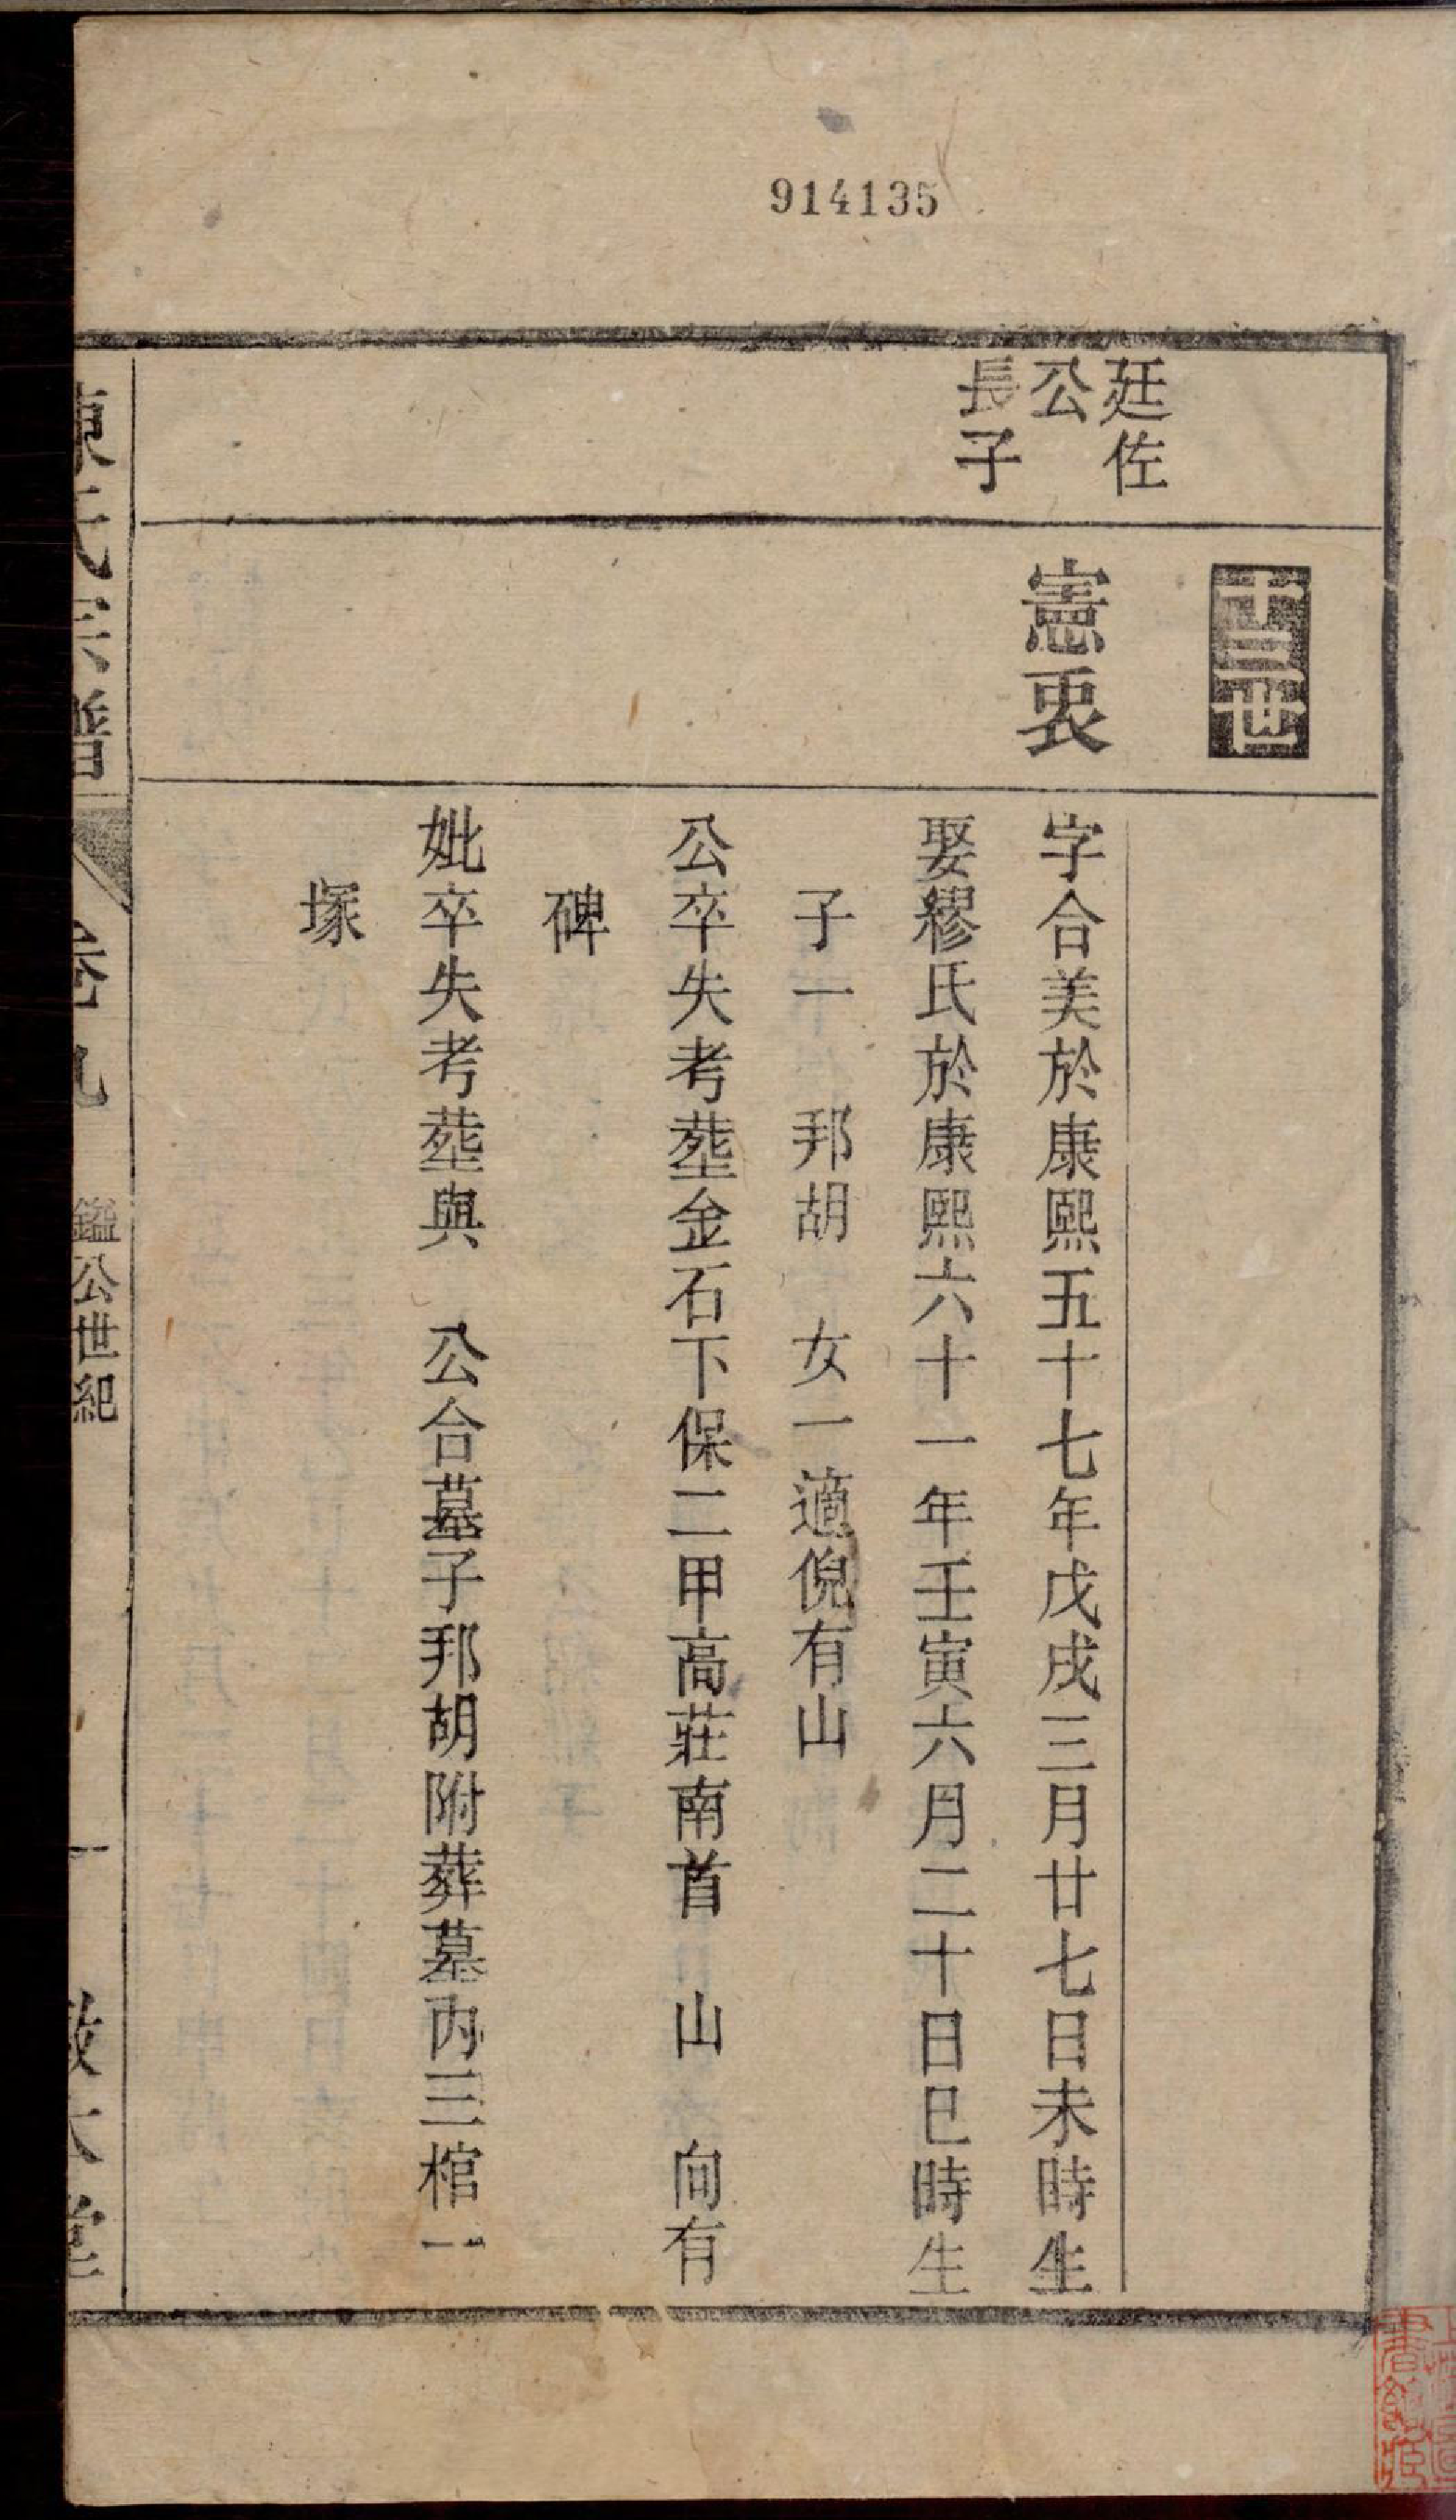 914135
十三世
廷佐
公
長子
憲衷
字合美於康熙五十七年戊戌三月廿七日未時生
娶繆氏於康熙六十一年壬寅六月二十日巳時生
子一 邦胡 女一適倪有山
公卒失考塟金石下保二甲高莊南首 山 向有
碑
妣卒失考塟與 公合墓子邦胡附葬墓內三棺一
塚
氏宗譜 卷九 鑑公世紀 一 敬 堂